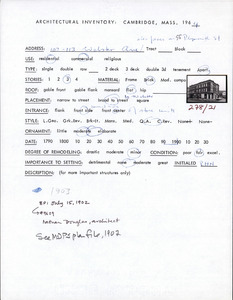 ARCHITECTURAL INVENTORY: CAMBRIDGE, MASS. 196
ADDRESS: Tract block
USE: residential commercial religious
TYPE: single double row 2 deck 3 deck double 3d tenement
STORIES: 1 2 3 4 MATERIAL: Frame Brick Mod. compos.
ROOF: gable front gable flank mansard flat hip
PLACEMENT: narrow to street broad to
ENTRANCE: flank front side front center
278/21
STYLE: L.Geo. Grk. Brkt. Mans. Med. Q.A. C.Rev. None
ORNAMENT: little moderate elaborate
DATE: 1790 1800 10 20 30 40 50 60 70 80 90 1900 10 20 30
DEGREE OF REMODELING: drastic moderate minor CONDITION: poor fair excel.
IMPORTANCE TO SETTING: detrimental none moderate great INITIALED
DESCRIPTION: (for more important structures only)
1903
BP: July 15, 1902
#8059
Nathan Douglas, architect
See MDPS plan file, 1902